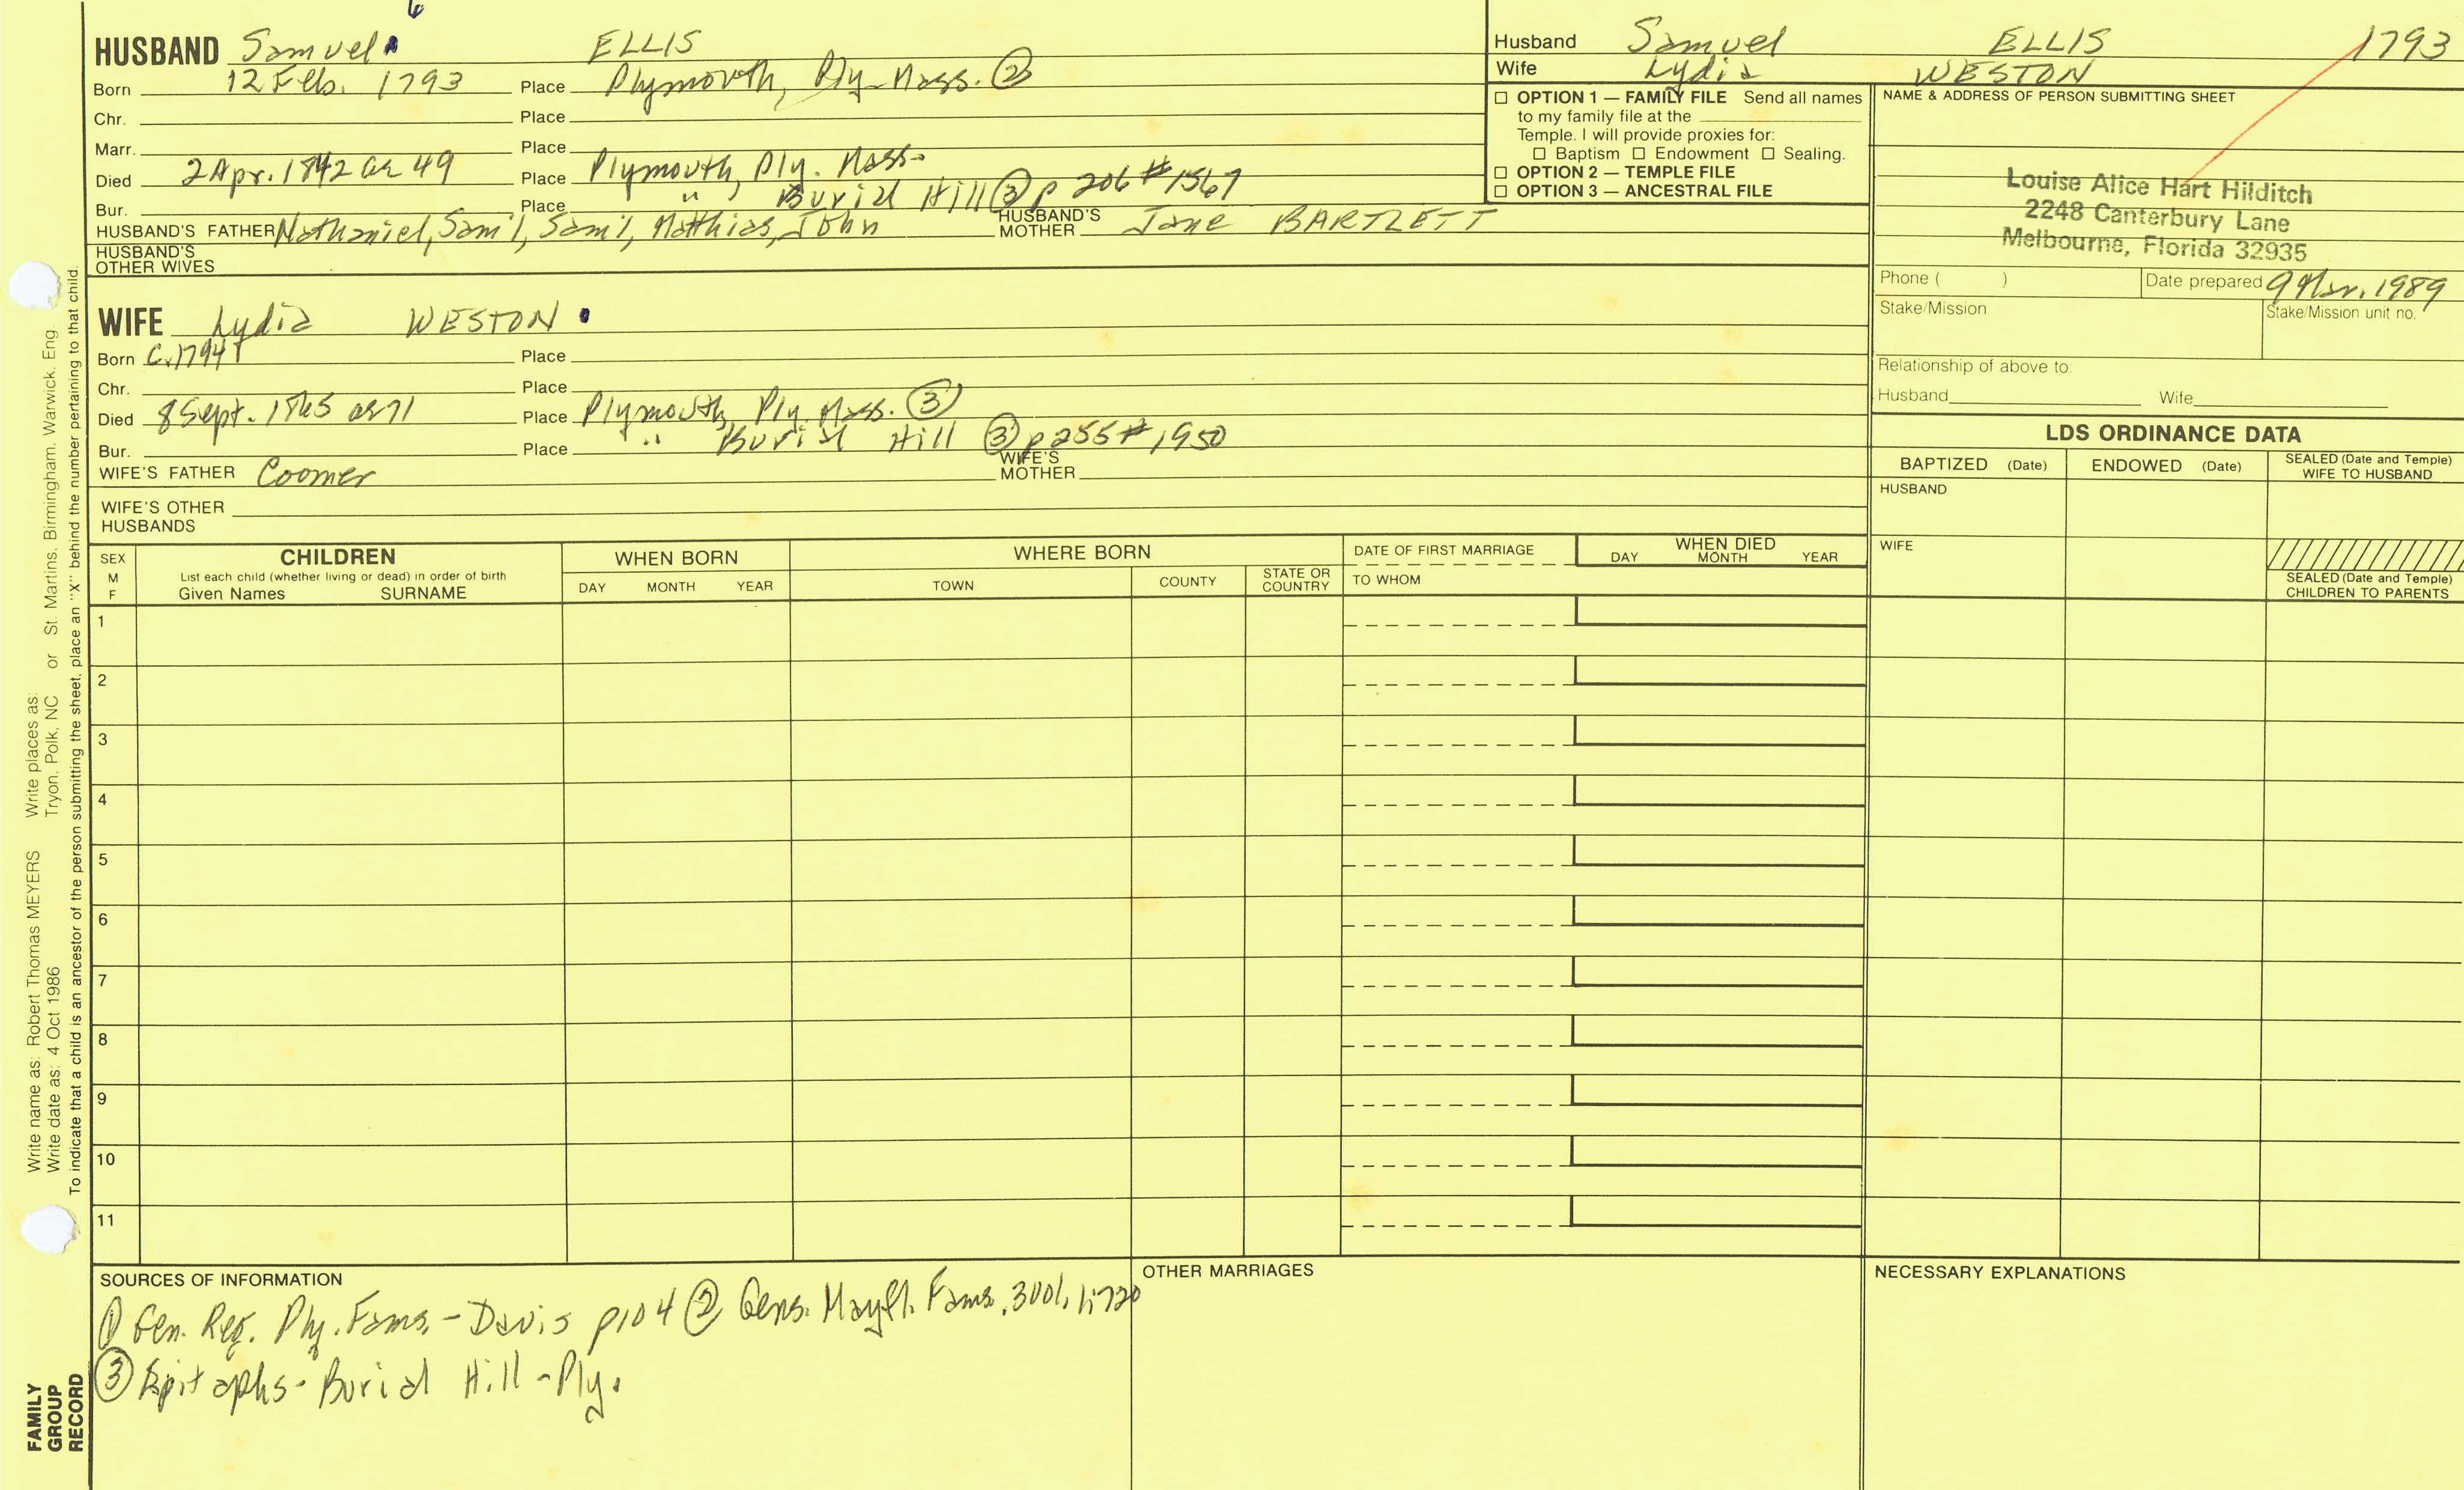 6
HUSBAND Samuel ELLIS
Born 12 Feb. 1793 Place Plymouth, Ply. Mass. ②
Chr. Place
Marr. Place
Died 2 Apr. 1842 ae 49 Place Plymouth, Ply. Mass.
Bur. Place " Burial Hill ③ p 206 #1567
HUSBAND'S FATHER Nathaniel, Sam'l, Sam'l, Matthias, John HUSBAND'S MOTHER Jane BARTLETT
HUSBAND'S OTHER WIVES
WIFE Lydia WESTON
Born C. 1794 Place
Chr. Place
Died 8 Sept. 1865 ae 71 Place Plymouth, Ply. Mass. ③
Bur. Place " Burial Hill ③ p 255 #1950
WIFE'S FATHER Coomer WIFE'S MOTHER
WIFE'S OTHER HUSBANDS
Husband Samuel ELLIS 1793
Wife Lydia WESTON
☐ OPTION 1 — FAMILY FILE Send all names
to my family file at the
Temple. I will provide proxies for:
☐ Baptism ☐ Endowment ☐ Sealing.
☐ OPTION 2 — TEMPLE FILE
☐ OPTION 3 — ANCESTRAL FILE
NAME & ADDRESS OF PERSON SUBMITTING SHEET
Louise Alice Hart Hilditch
2248 Canterbury Lane
Melbourne, Florida 32935
Phone ( ) Date prepared 9 Mar. 1989
Stake/Mission Stake/Mission unit no.
Relationship of above to:
Husband Wife
LDS ORDINANCE DATA
BAPTIZED (Date) ENDOWED (Date) SEALED (Date and Temple) WIFE TO HUSBAND
HUSBAND
WIFE
SEALED (Date and Temple)
CHILDREN TO PARENTS
SEX M F
CHILDREN
List each child (whether living or dead) in order of birth
Given Names SURNAME
WHEN BORN
DAY MONTH YEAR
WHERE BORN
TOWN COUNTY STATE OR COUNTRY
DATE OF FIRST MARRIAGE
TO WHOM
WHEN DIED
DAY MONTH YEAR
1
2
3
4
5
6
7
8
9
10
11
SOURCES OF INFORMATION
① Gen. Reg. Ply. Fams. - Davis p104 ② Gens. Mayfl. Fams. 3001, 1:720
③ Epitaphs - Burial Hill - Ply.
OTHER MARRIAGES
NECESSARY EXPLANATIONS
Write name as: Robert Thomas MEYERS Write places as:
Write date as: 4 Oct 1986 Tryon, Polk, NC or St. Martins, Birmingham, Warwick, Eng
To indicate that a child is an ancestor of the person submitting the sheet, place an "X" behind the number pertaining to that child.
FAMILY
GROUP
RECORD